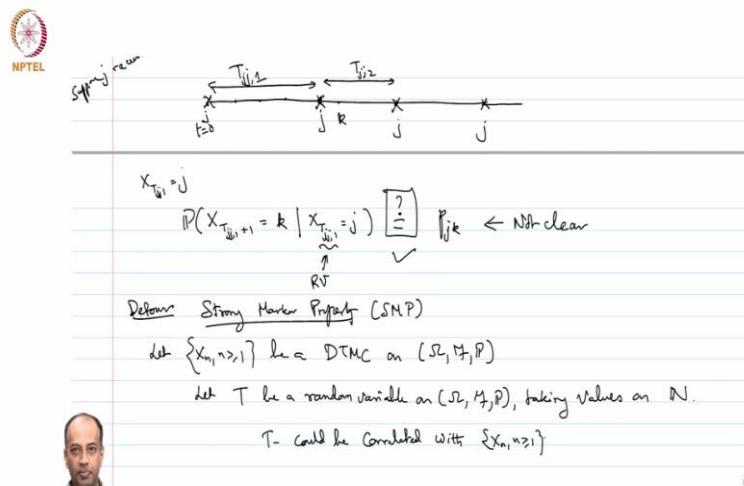 NPTEL
Suppose j recurr
T_{jj,1} T_{jj,2}
j j k j j
t=0
X_{T_{jj,1}} = j
ℙ(X_{T_{jj,1}+1} = k | X_{T_{jj,1}} = j) ≟ P_{jk} ← Not clear
↑ ✓
RV
Detour Strong Markov Property (SMP)
Let {X_n, n≥1} be a DTMC on (Ω, ℱ, ℙ)
Let T be a random variable on (Ω, ℱ, ℙ), taking values on ℕ.
T- could be correlated with {X_n, n≥1}